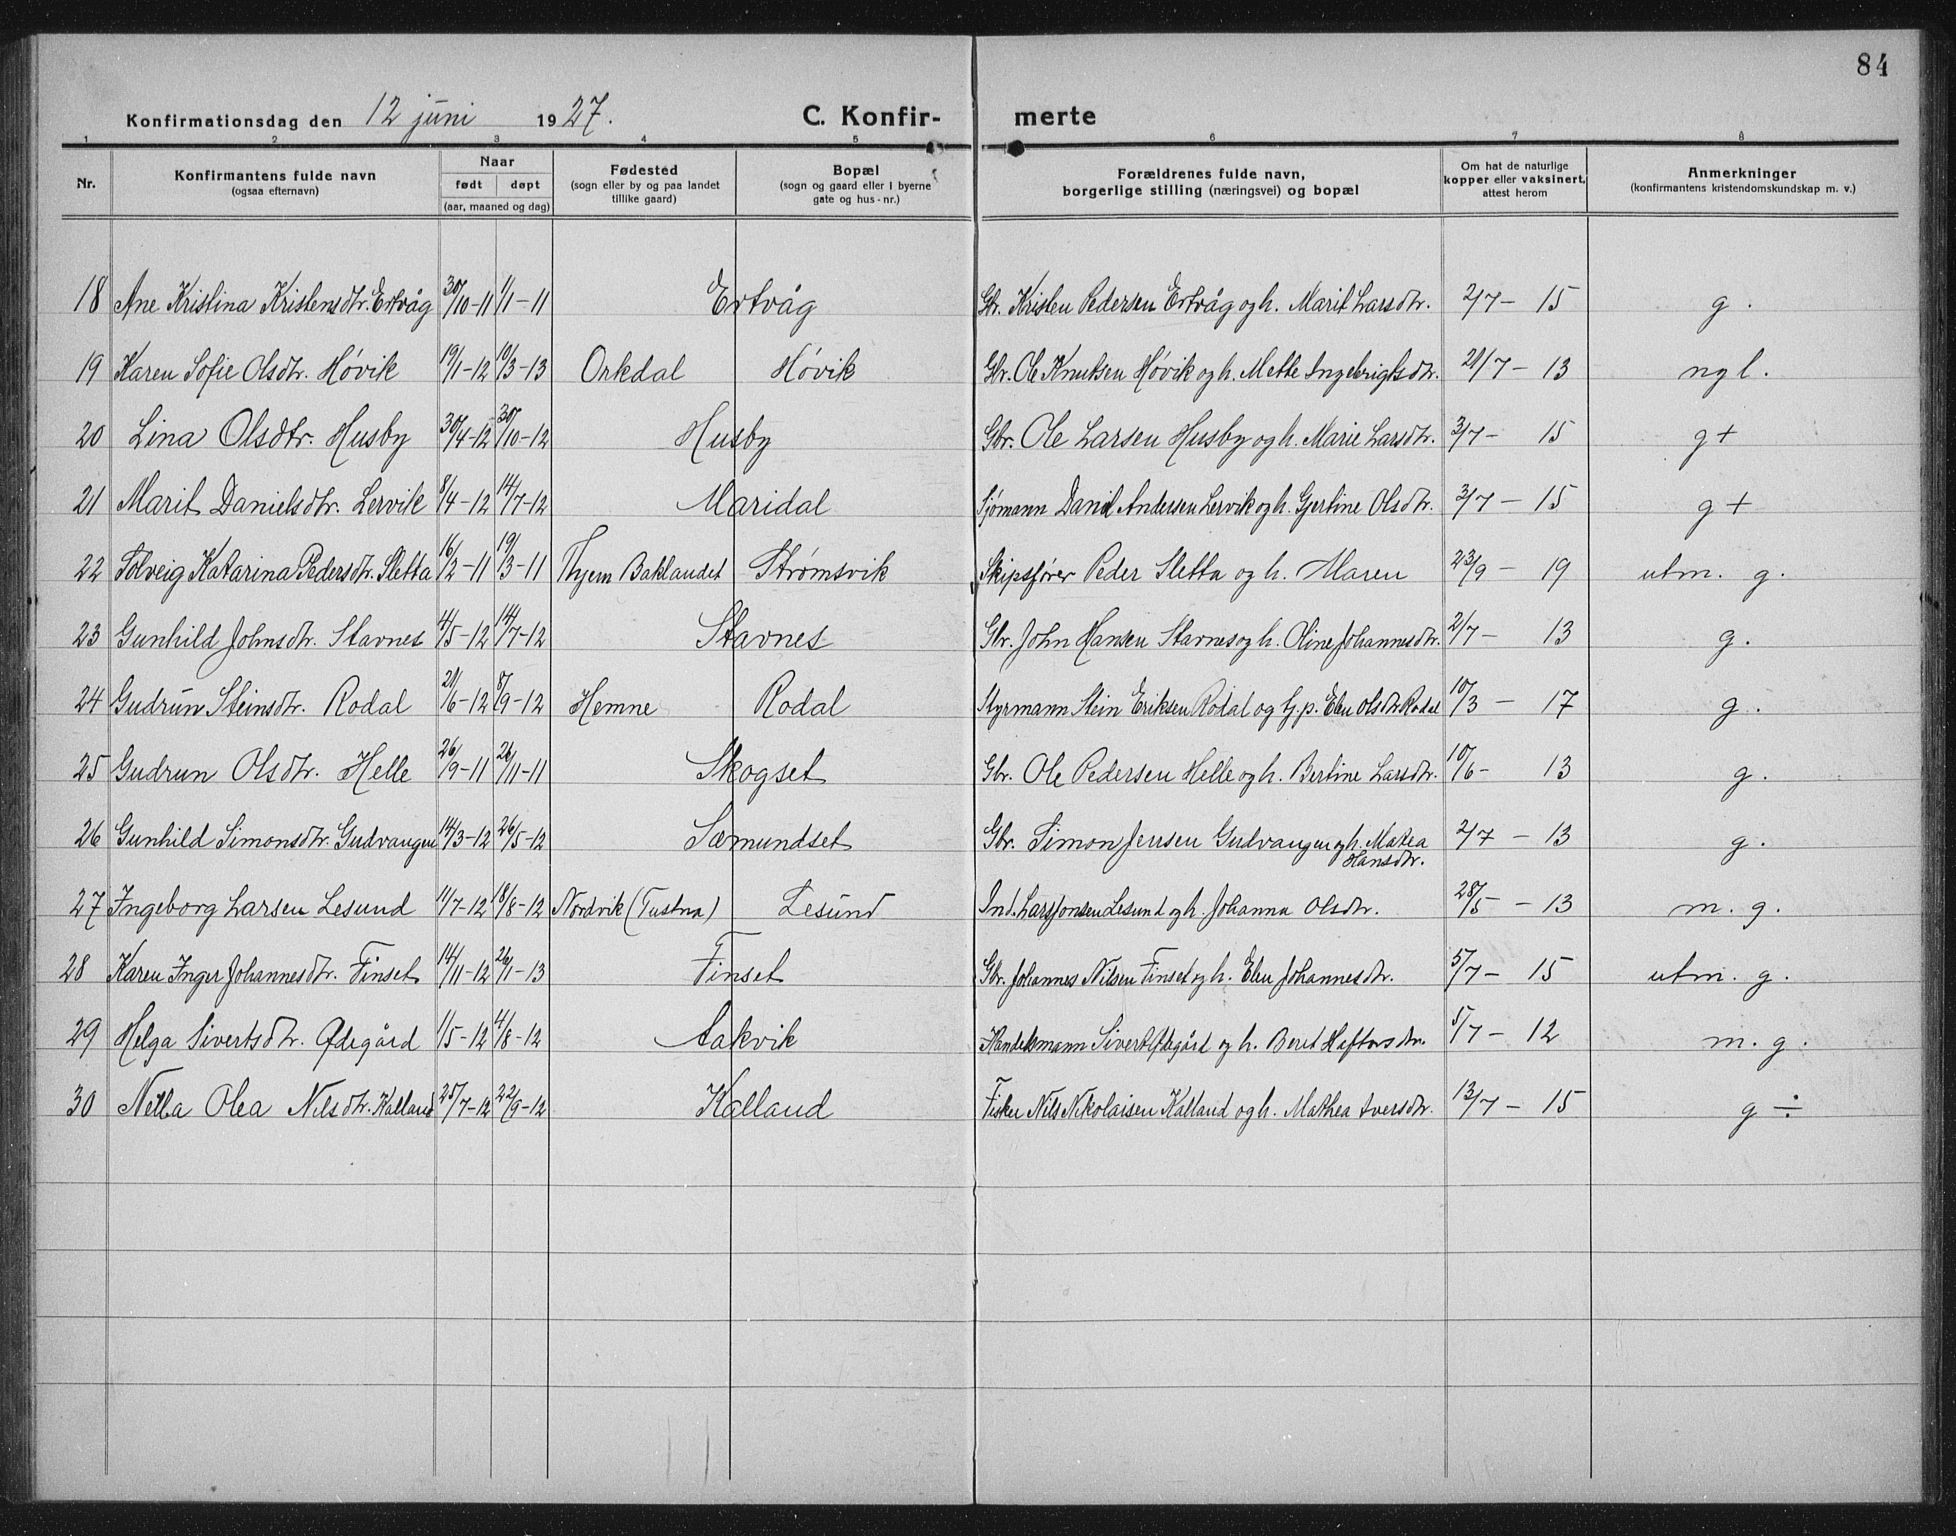 84
Konfirmationsdag den 12 juni 1927. C. Konfir- merte
1 2 3 4 5 6 7 8
Nr. Konfirmantens fulde navn (ogsaa efternavn) Naar født døpt (aar, maaned og dag) Fødested (sogn eller by og paa landet tillike gaard) Bopæl (sogn og gaard eller i byerne gate og hus-nr.) Forældrenes fulde navn, borgerlige stilling (næringsvei) og bopæl Om hat de naturlige kopper eller vaksinert, attest herom Anmerkninger (konfirmantens kristendomskundskap m. v.)
18 Ane Kristina Kristensdtr. Ertvåg 30/10-11 1/1-11 Ertvåg Gbr. Kristen Pedersen Ertvåg og h. Marit Larsdtr. 2/7 - 15 g.
19 Karen Sofie Olsdtr. Høvik 19/1-12 10/3-13 Orkdal Høvik Gbr. Ole Knutsen Høvik og h. Mette Ingebrigtsdtr. 21/7 - 13 ngl.
20 Lina Olsdtr. Husby 30/4-12 30/10-12 Husby Gbr. Ole Larsen Husby og h. Marie Larsdtr. 3/7 - 15 g+
21 Marit Danielsdtr. Lervik 8/4-12 14/7-12 Maridal Sjømann Daniel Andersen Lervik og h. Gjertine Olsdtr. 3/7 - 15 g+
22 Solveig Katarina Pedersdtr. Sletta 16/2-11 19/3-11 Thjem Baklandet Strømsvik Skipsfører Peder Sletta og h. Maren 23/9 - 19 utm. g.
23 Gunhild Johnsdtr. Stavnes 4/5-12 14/7-12 Stavnes Gbr. John Hansen Stavnes og h. Oline Johannesdtr. 2/7 - 13 g.
24 Gudrun Steinsdtr. Rodal 21/6-12 8/9-12 Hemne Rodal Styrmann Stein Eriksen Rodal og tj.p. Elen Olsdtr Rodal 10/3 - 17 g.
25 Gudrun Olsdtr. Helle 26/9-11 26/11-11 Skogset Gbr. Ole Pedersen Helle og h. Bertine Larsdtr. 10/6 - 13 g.
26 Gunhild Simonsdtr. Gudvangen 14/3-12 26/5-12 Sæmundset Gbr. Simon Jensen Gudvangen og h. Matea Hansdtr. 2/7 - 13 g.
27 Ingeborg Larsen Lesund 11/7-12 18/8-12 Nordvik (Tustna) Lesund Ind. Lars Jonsen Lesund og h. Johanna Olsdtr. 28/5 - 13 m. g.
28 Karen Inger Johannesdtr. Finset 14/11-12 26/1-13 Finset Gbr. Johannes Nilsen Finset og h. Elen Johannesdtr. 5/7 - 15 utm. g.
29 Helga Sivertsdtr. Ødegård 1/5-12 4/8-12 Aakvik Handelsmann Sivert Ødegård og h. Beret Haftorsdtr. 5/7 - 12 m. g.
30 Nella Olea Nilsdtr. Kalland 25/7-12 22/9-12 Kalland Fisker Nils Nikolaisen Kalland og h. Mathea Iversdtr. 13/7 - 15 g ÷